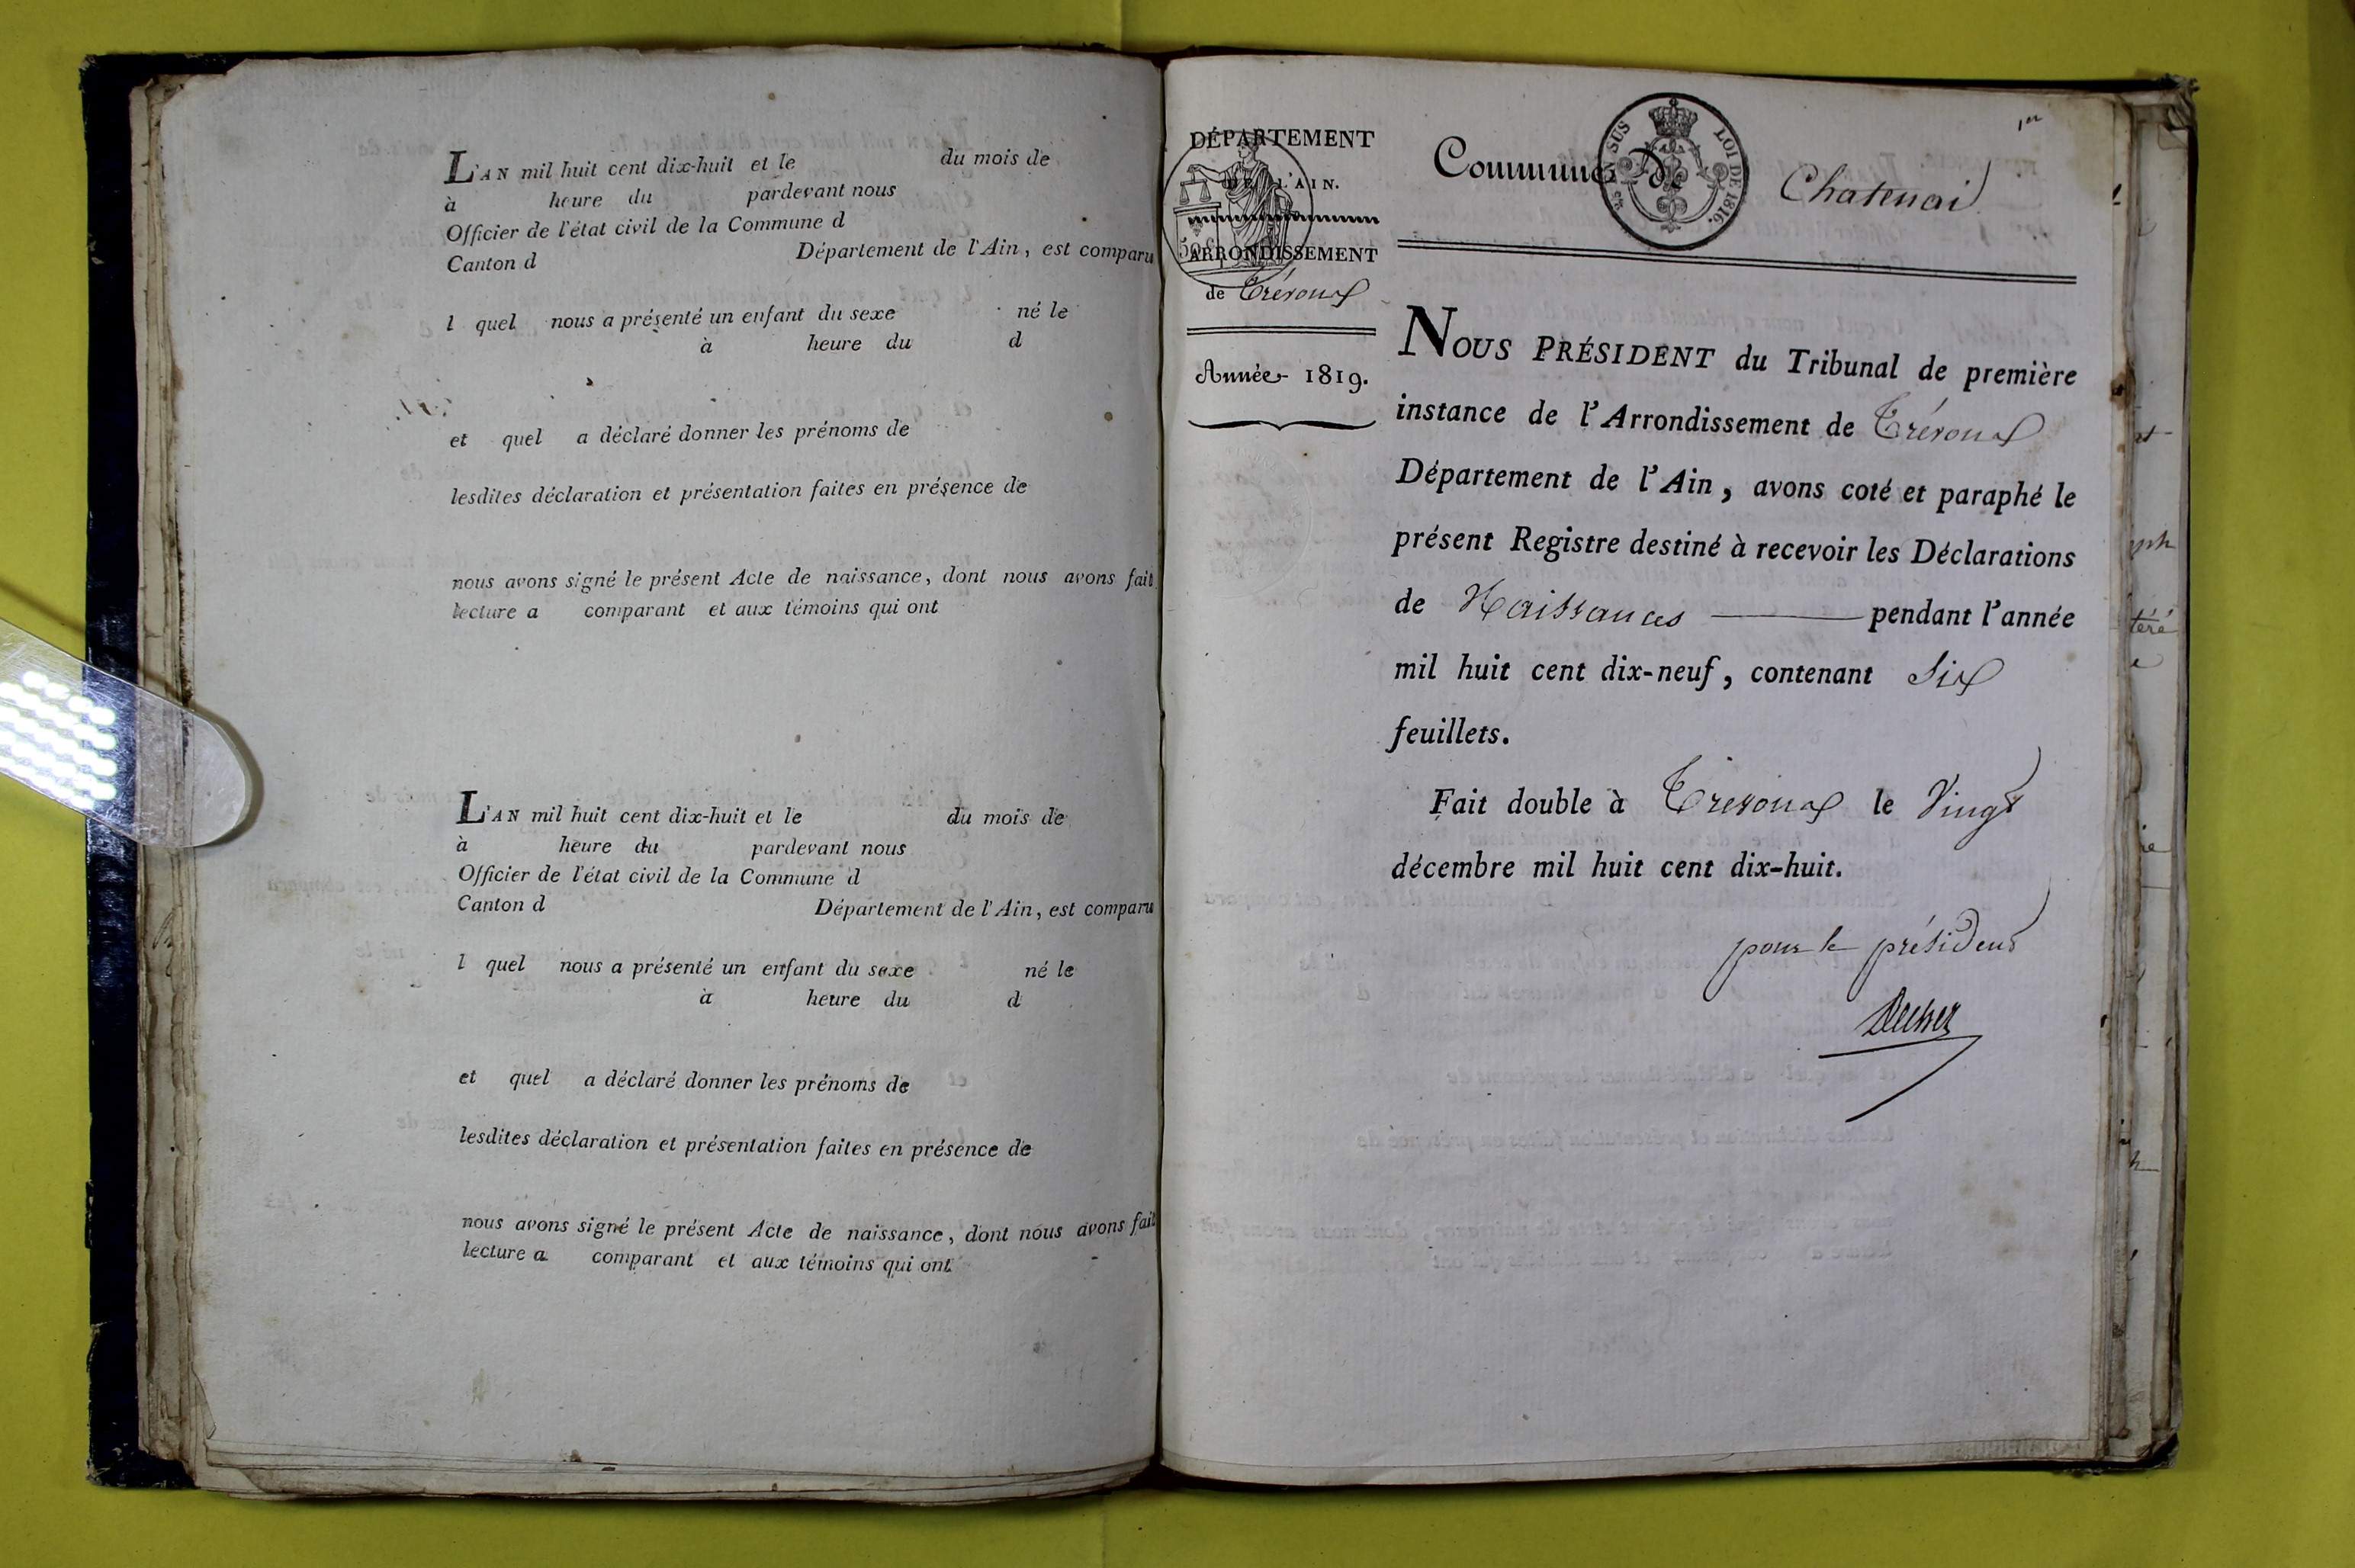 L'AN mil huit cent dix-huit et le du mois de
à heure du pardevant nous
Officier de l'état civil de la Commune d
Canton d Département de l'Ain, est comparu
l quel nous a présenté un enfant du sexe né le
à heure du d
et quel a déclaré donner les prénoms de
lesdites déclaration et présentation faites en présence de
nous avons signé le présent Acte de naissance, dont nous avons fait
lecture a comparant et aux témoins qui ont
L'AN mil huit cent dix-huit et le du mois de
à heure du pardevant nous
Officier de l'état civil de la Commune d
Canton d Département de l'Ain, est comparu
l quel nous a présenté un enfant du sexe né le
à heure du d
et quel a déclaré donner les prénoms de
lesdites déclaration et présentation faites en présence de
nous avons signé le présent Acte de naissance, dont nous avons fait
lecture a comparant et aux témoins qui ont
DÉPARTEMENT
DE L'AIN.
50 c
ARRONDISSEMENT
de Trévoux
Année 1819.
1er
Commune de Chatenai
EN SUS
LOI DE 1816.
NOUS PRÉSIDENT du Tribunal de première
instance de l'Arrondissement de Trévoux
Département de l'Ain, avons coté et paraphé le
présent Registre destiné à recevoir les Déclarations
de Naissances pendant l'année
mil huit cent dix-neuf, contenant Six
feuillets.
Fait double à Trevoux le Vingt
décembre mil huit cent dix-huit.
pour le président